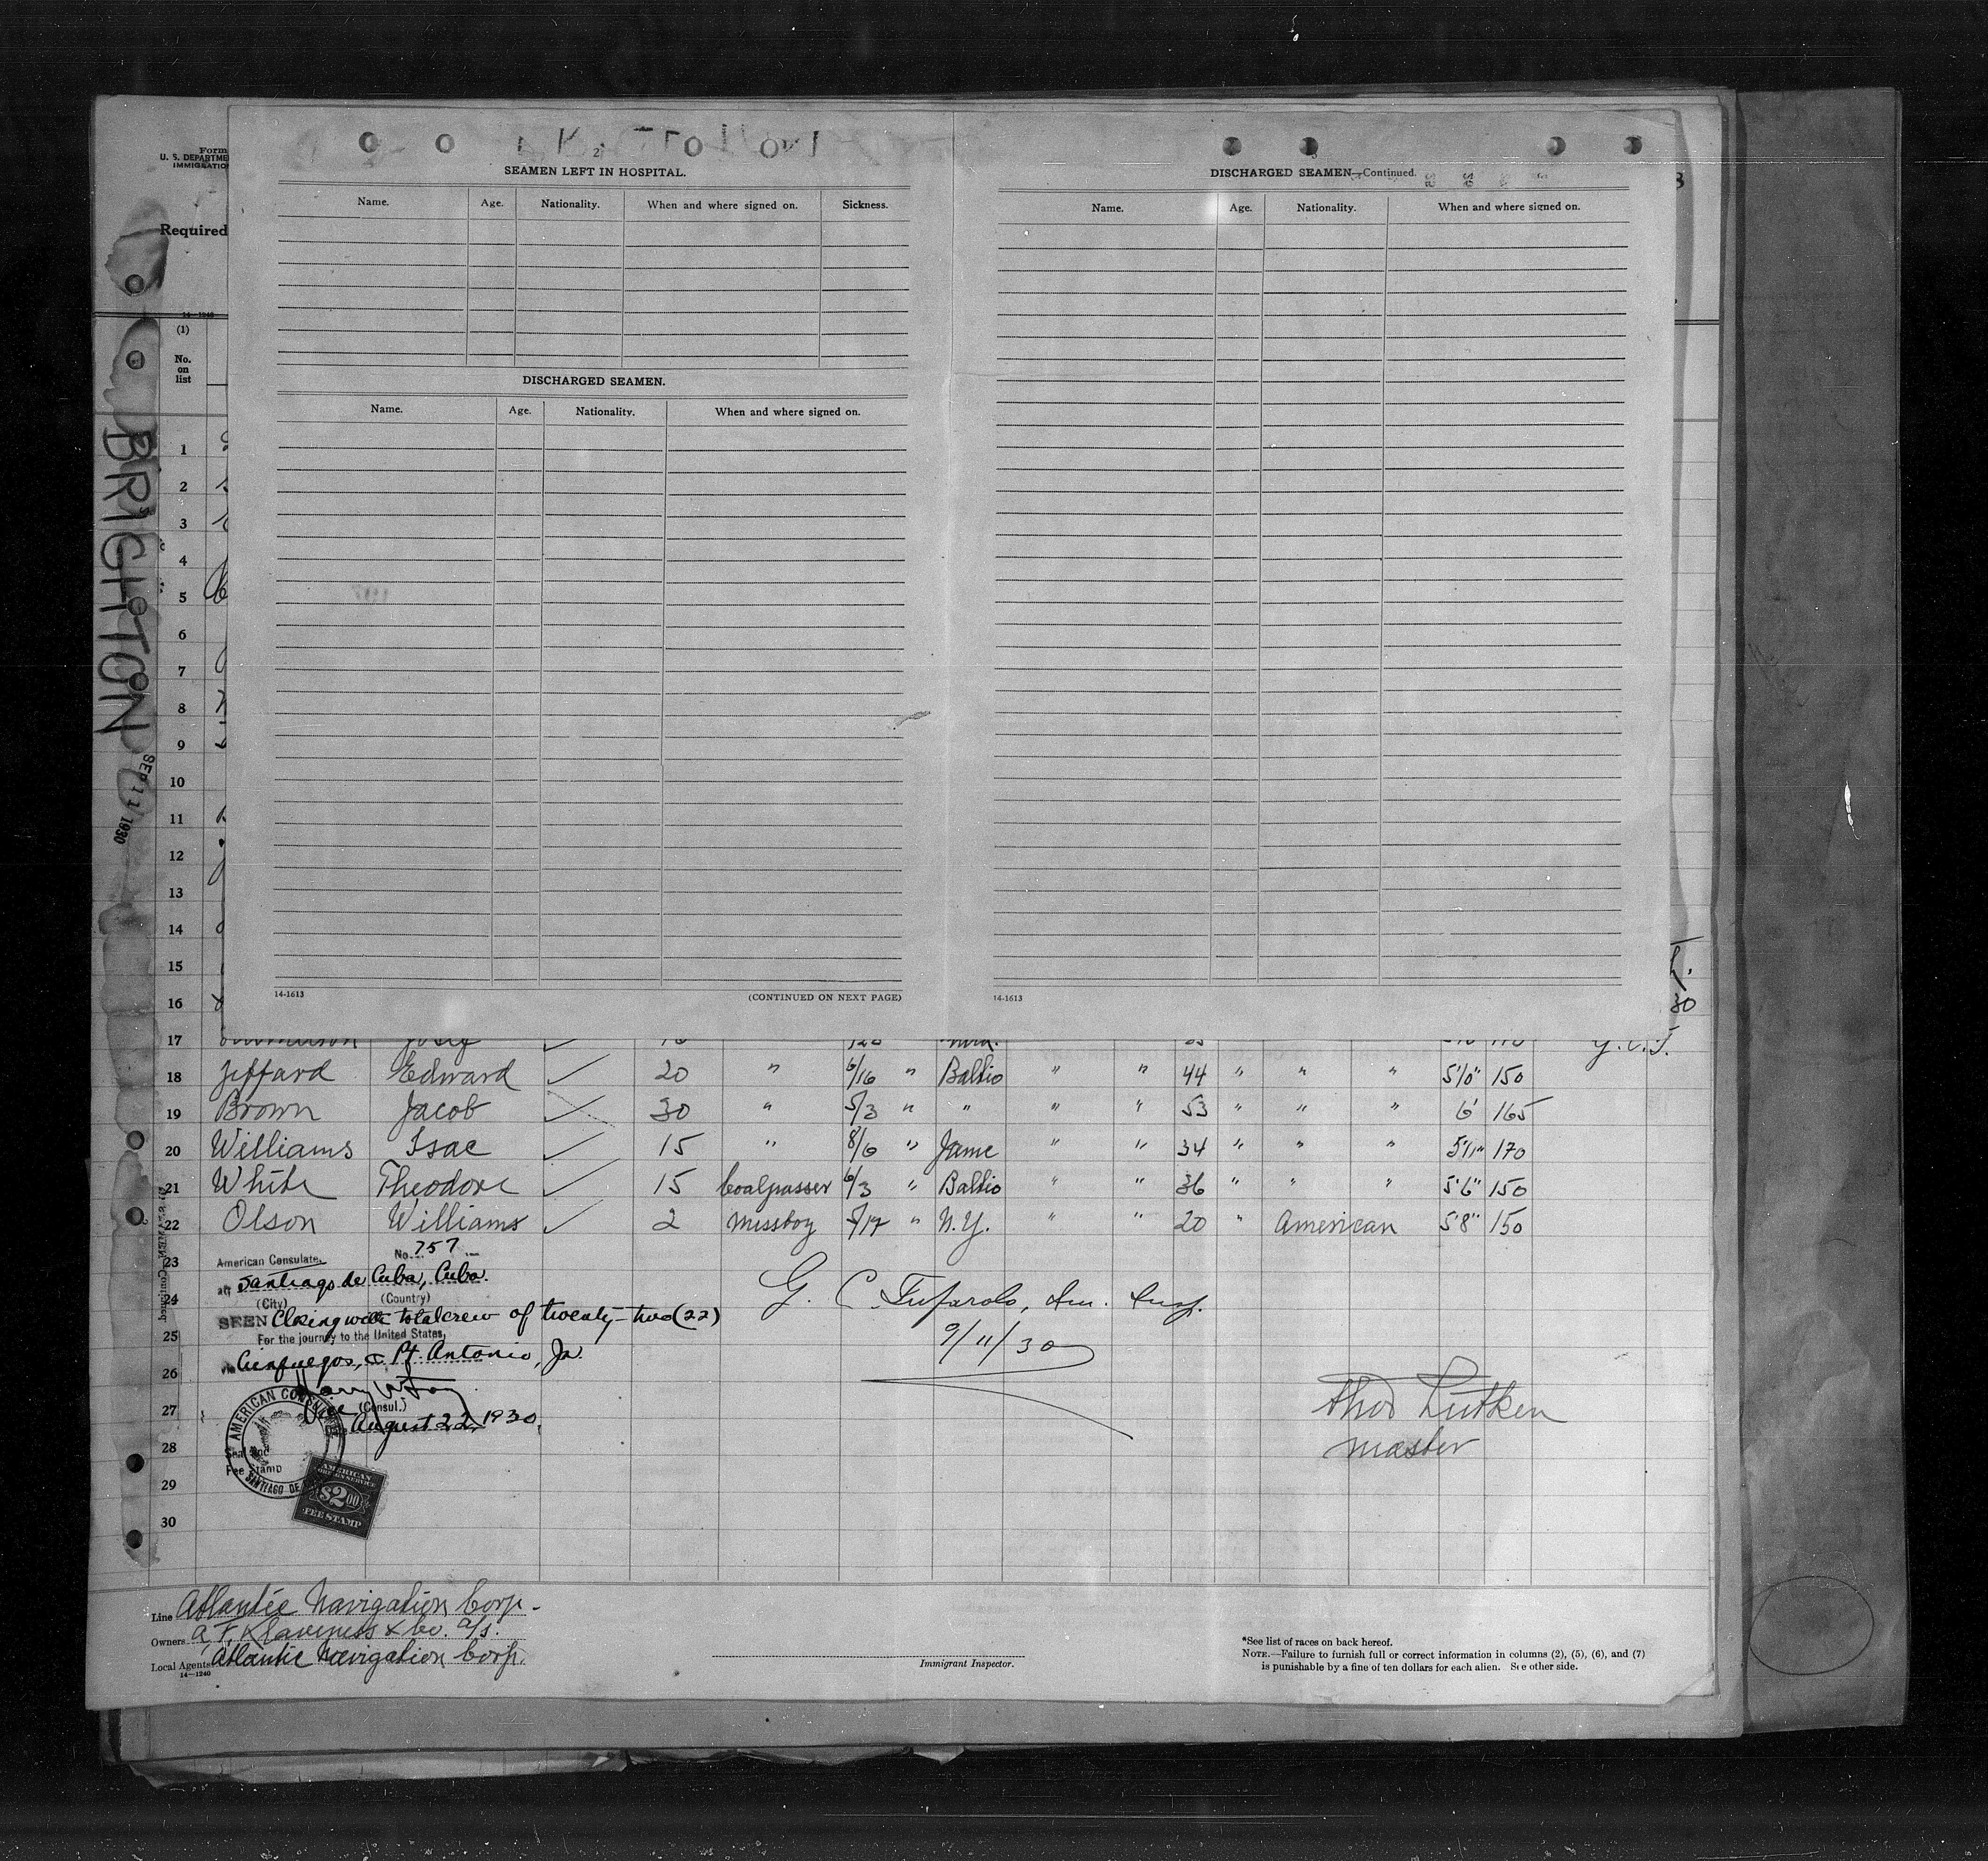 Form
U. S. DEPARTME
IMMIGRATION
Required
14-1240
(1)
No.
on
list
BRIGHTON
SEP 11 1930
2
SEAMEN LEFT IN HOSPITAL.
Name. Age. Nationality. When and where signed on. Sickness.
DISCHARGED SEAMEN.
Name. Age. Nationality. When and where signed on.
14-1613 (CONTINUED ON NEXT PAGE)
3
DISCHARGED SEAMEN—Continued.
Name. Age. Nationality. When and where signed on.
14-1613
1
2
3
4
5
6
7
8
9
10
11
12
13
14
15
16 30
17
18 Jeffard Edward ✓ 20 " 6/16 " Baltio " " 44 " " " 5'10" 150
19 Brown Jacob ✓ 30 " 5/3 " " " " 53 " " " 6' 165
20 Williams Isac ✓ 15 " 8/6 " Jame " " 34 " " " 5'11" 170
21 White Theodore ✓ 15 Coalpasser 6/3 " Baltio " " 36 " " " 5'6" 150
22 Olson Williams ✓ 2 Messboy /17 " N.Y. " " 20 " American 5'8" 150
23
24
25
26
27
28
29
30
American Consulate. No. 757
at Santiago de Cuba, Cuba.
(City) (Country)
SEEN Closing with total crew of twenty-two (22)
For the journey to the United States,
via Cienfuegos, & Pt. Antonio, Ja.
Vice (Consul.)
August 22, 1930.
Seal and
Fee Stamp
AMERICAN CONSULATE
SANTIAGO DE
AMERICAN
FOREIGN SERVICE
$2.00
FEE STAMP
G. C. Tufarolo, Im. Insp.
9/11/30
Thos Lutken
master
Line Atlantic Navigation Corp.
Owners A. F. Klaveness & Co. A/S.
Local Agents Atlantic Navigation Corp.
14-1240
Immigrant Inspector.
*See list of races on back hereof.
NOTE.—Failure to furnish full or correct information in columns (2), (5), (6), and (7)
is punishable by a fine of ten dollars for each alien. See other side.